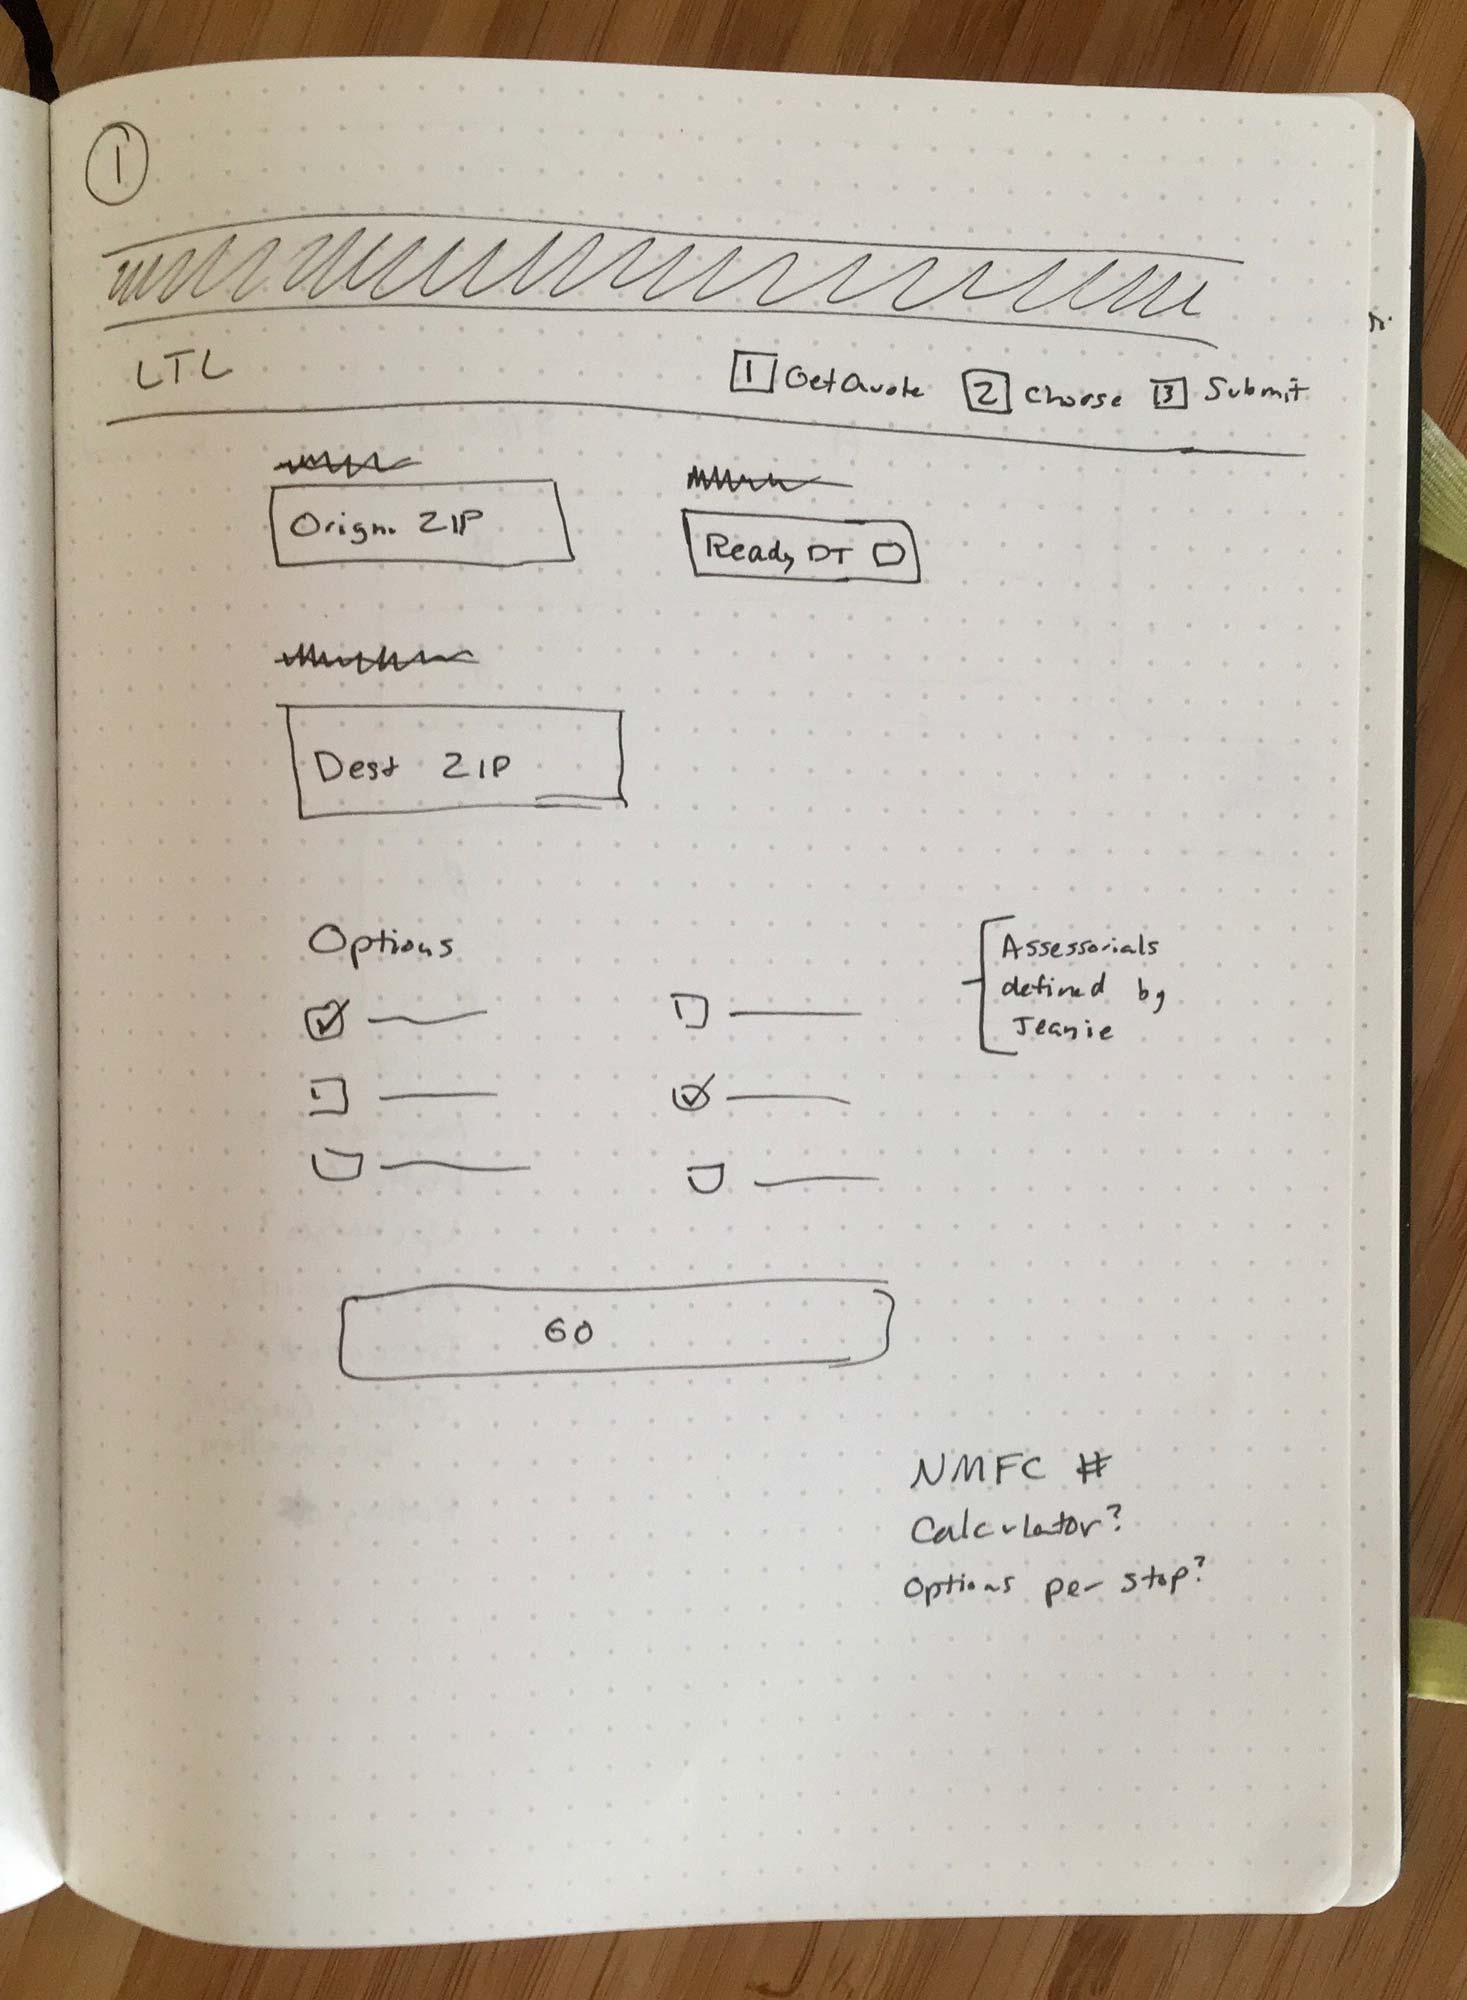 1
LTL
1 Get Quote 2 Choose 3 Submit
Origin ZIP
Ready DT
Dest ZIP
Options
Assessorials
defined by
Jeanie
GO
NMFC #
Calculator?
Options per stop?